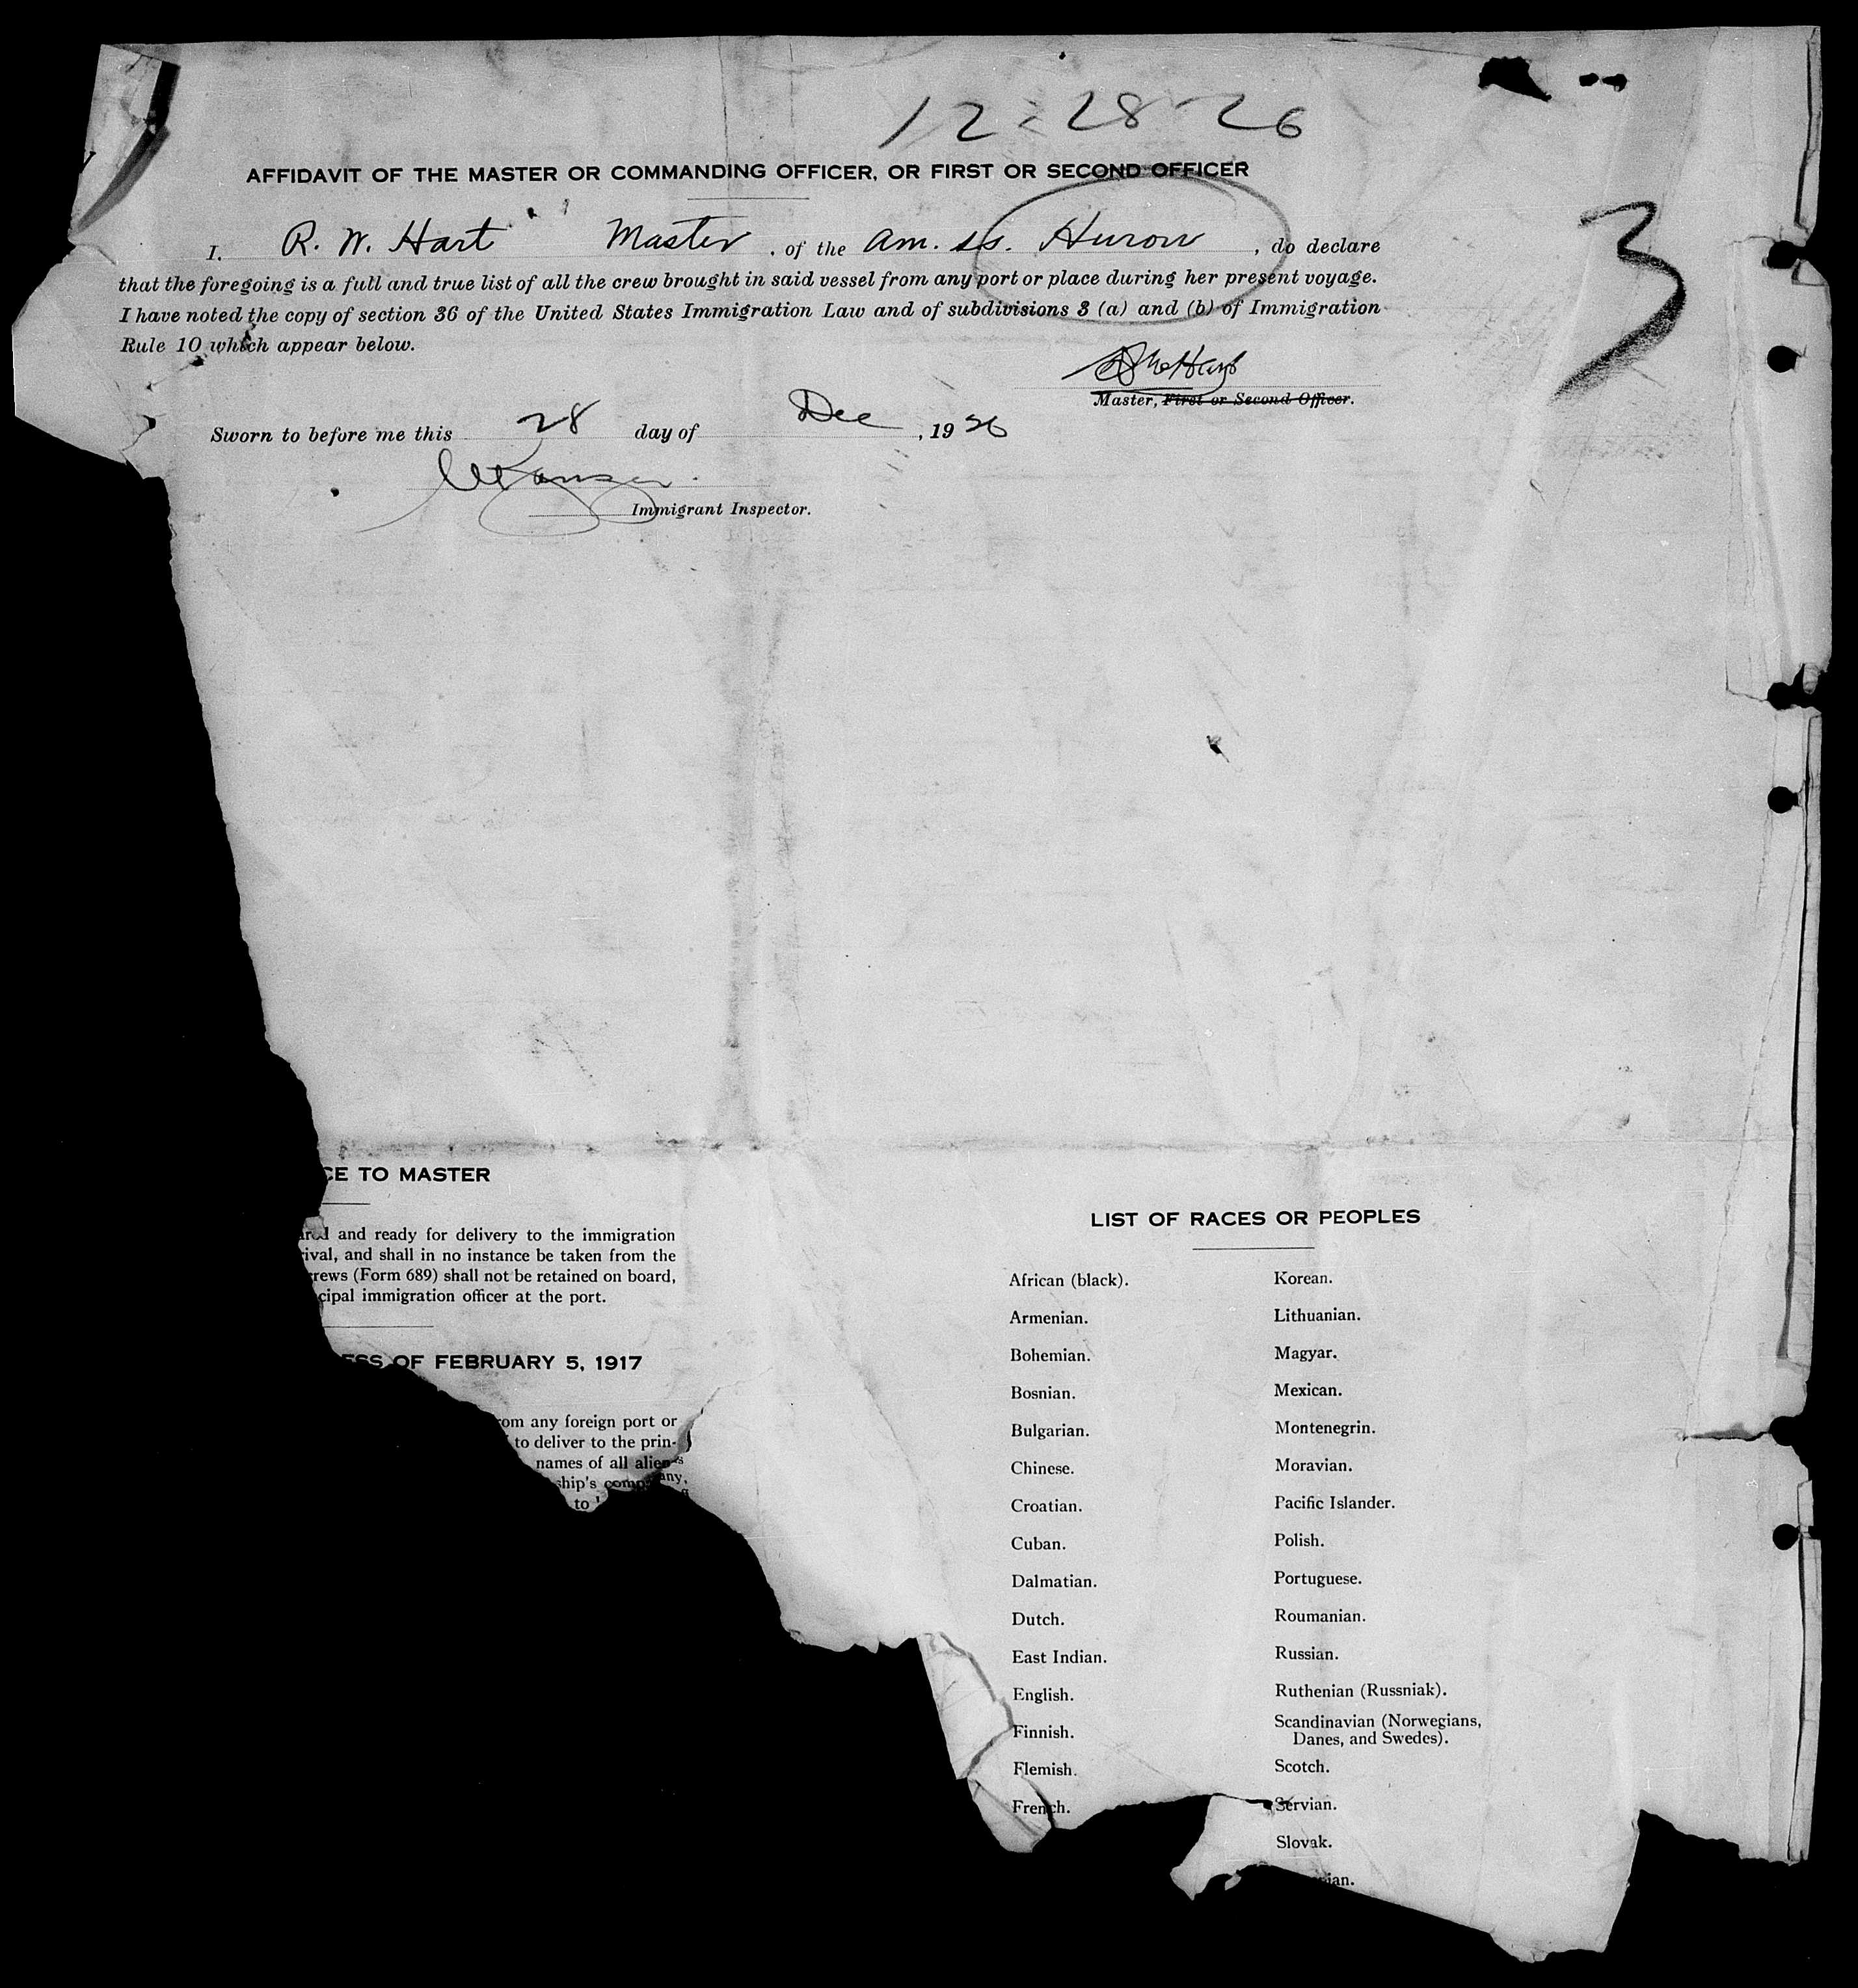 12-28-26
AFFIDAVIT OF THE MASTER OR COMMANDING OFFICER, OR FIRST OR SECOND OFFICER
I, R. W. Hart Master, of the Am. ss. Huron, do declare
that the foregoing is a full and true list of all the crew brought in said vessel from any port or place during her present voyage.
I have noted the copy of section 36 of the United States Immigration Law and of subdivisions 3 (a) and (b) of Immigration
Rule 10 which appear below.
3
Master, First or Second Officer.
Sworn to before me this 28 day of Dec, 1926
Immigrant Inspector.
CE TO MASTER
and ready for delivery to the immigration
ival, and shall in no instance be taken from the
rews (Form 689) shall not be retained on board,
cipal immigration officer at the port.
ESS OF FEBRUARY 5, 1917
om any foreign port or
to deliver to the prin-
names of all aliens
ship's company,
to
LIST OF RACES OR PEOPLES
African (black).
Armenian.
Bohemian.
Bosnian.
Bulgarian.
Chinese.
Croatian.
Cuban.
Dalmatian.
Dutch.
East Indian.
English.
Finnish.
Flemish.
French.
Korean.
Lithuanian.
Magyar.
Mexican.
Montenegrin.
Moravian.
Pacific Islander.
Polish.
Portuguese.
Roumanian.
Russian.
Ruthenian (Russniak).
Scandinavian (Norwegians,
Danes, and Swedes).
Scotch.
Servian.
Slovak.
ian.